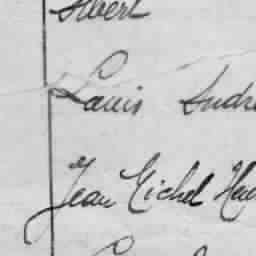 Albert
Louis André
Jean Michel